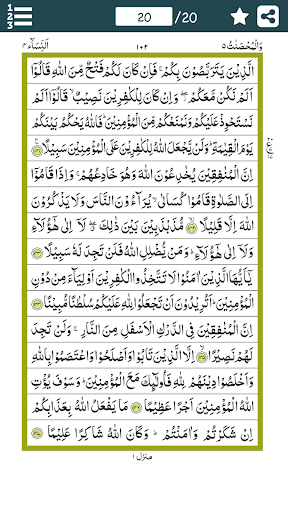 20 /20
وَالْمُحْصَنٰتُ ٥ ١٠٢ اَلنِّسَآء ٤
الَّذِيْنَ يَتَرَبَّصُوْنَ بِكُمْ ۚ فَاِنْ كَانَ لَكُمْ فَتْحٌ مِّنَ اللّٰهِ قَالُوْۤا
اَلَمْ نَكُنْ مَّعَكُمْ ۖ وَاِنْ كَانَ لِلْكٰفِرِيْنَ نَصِيْبٌ ۙ قَالُوْۤا اَلَمْ
نَسْتَحْوِذْ عَلَيْكُمْ وَنَمْنَعْكُمْ مِّنَ الْمُؤْمِنِيْنَ ؕ فَاللّٰهُ يَحْكُمُ بَيْنَكُمْ
يَوْمَ الْقِيٰمَةِ ؕ وَلَنْ يَّجْعَلَ اللّٰهُ لِلْكٰفِرِيْنَ عَلَى الْمُؤْمِنِيْنَ سَبِيْلًا ﴿١٤١﴾
اِنَّ الْمُنٰفِقِيْنَ يُخٰدِعُوْنَ اللّٰهَ وَهُوَ خَادِعُهُمْ ۚ وَاِذَا قَامُوْۤا
اِلَى الصَّلٰوةِ قَامُوْا كُسَالٰى ۙ يُرَآءُوْنَ النَّاسَ وَلَا يَذْكُرُوْنَ
اللّٰهَ اِلَّا قَلِيْلًا ﴿١٤٢﴾ مُّذَبْذَبِيْنَ بَيْنَ ذٰلِكَ ۖ لَاۤ اِلٰى هٰۤؤُلَآءِ
وَلَاۤ اِلٰى هٰۤؤُلَآءِ ؕ وَمَنْ يُّضْلِلِ اللّٰهُ فَلَنْ تَجِدَ لَهٗ سَبِيْلًا ﴿١٤٣﴾
يٰۤاَيُّهَا الَّذِيْنَ اٰمَنُوْا لَا تَتَّخِذُوا الْكٰفِرِيْنَ اَوْلِيَآءَ مِنْ دُوْنِ
الْمُؤْمِنِيْنَ ؕ اَتُرِيْدُوْنَ اَنْ تَجْعَلُوْا لِلّٰهِ عَلَيْكُمْ سُلْطٰنًا مُّبِيْنًا ﴿١٤٤﴾
اِنَّ الْمُنٰفِقِيْنَ فِى الدَّرْكِ الْاَسْفَلِ مِنَ النَّارِ ۚ وَلَنْ تَجِدَ
لَهُمْ نَصِيْرًا ﴿١٤٥﴾ اِلَّا الَّذِيْنَ تَابُوْا وَاَصْلَحُوْا وَاعْتَصَمُوْا بِاللّٰهِ
وَاَخْلَصُوْا دِيْنَهُمْ لِلّٰهِ فَاُولٰٓئِكَ مَعَ الْمُؤْمِنِيْنَ ؕ وَسَوْفَ يُؤْتِ
اللّٰهُ الْمُؤْمِنِيْنَ اَجْرًا عَظِيْمًا ﴿١٤٦﴾ مَا يَفْعَلُ اللّٰهُ بِعَذَابِكُمْ
اِنْ شَكَرْتُمْ وَاٰمَنْتُمْ ؕ وَكَانَ اللّٰهُ شَاكِرًا عَلِيْمًا ﴿١٤٧﴾
منزل ١